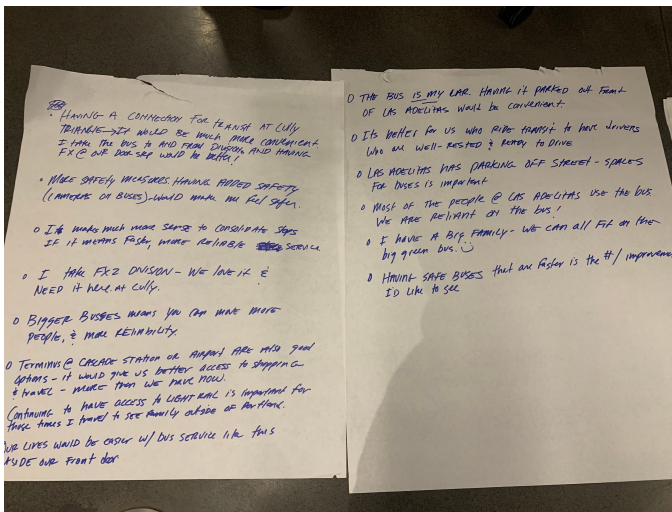 • HAVING A CONNECTION FOR TRANSIT AT Cully
TRIANGLE → IT WOULD BE MUCH MORE CONVENIENT
I TAKE THE BUS TO AND FROM DIVISION AND HAVING
FX @ OUR DOOR STEP WOULD BE better!
• MORE SAFETY MEASURES. HAVING ADDED SAFETY
(CAMERAS ON BUSES) - WOULD MAKE ME FEEL SAFER.
o Its makes much more sense to consolidate stops
IF it MEANS FASTER, MORE RELIABLE SERVICE
o I take FX2 DIVISION - WE love it &
NEED IT here at Cully.
o BIGGER BUSSES means you can move more
PEOPLE, & more RELIABILITY.
o Terminus @ CASCADE STATION OR AIRPORT ARE also good
options - it would give us better access to shopping
& travel - more then WE have now.
Continuing to have access to LIGHT RAIL is important for
those times I travel to SEE FAMILY outside of Portland.
OUR LIVES WOULD be easier w/ bus SERVICE like this
our Front door
o THE BUS IS MY CAR. HAVING it PARKED out Front
OF LAS ADELITAS would be convenient.
o Its better for us who RIDE TRANSIT to have drivers
Who are well-RESTED & READY to DRIVE
o LAS ADELITAS HAS PARKING OFF STREET - SPACES
For buses is important
o MOST OF THE PEOPLE @ LAS ADELITAS USE the bus
WE ARE RELIANT on the bus!
o I HAVE A BIG FAMILY - WE CAN all Fit on the
big green bus. ☺
o HAVING SAFE BUSES that are faster is the #1
I'D like to see